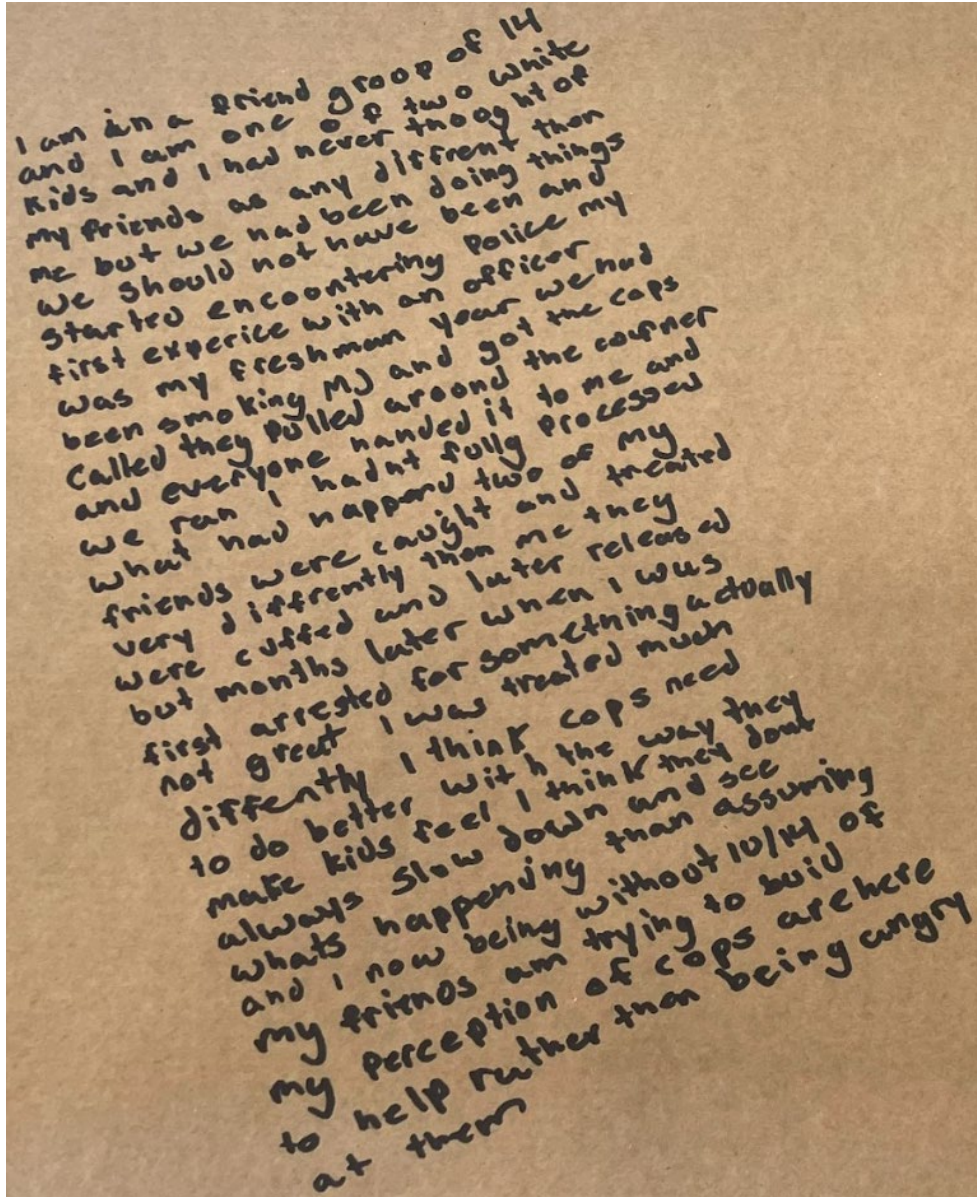 I am in a friend groop of 14
and I am one of two white
kids and I had never thooght of
my friends as any diffrent then
me but we had been doing things
we should not have been and
started encoontering police my
first experice with an officer
was my freshman year we had
been smoking MJ and got the cops
called they pulled aroond the courner
and everyone handed it to me and
we ran I hadnt fully processed
what had happend two of my
friends were caught and treated
very diffrently then me they
were cuffed and later released
but months later when I was
first arrested for something actually
not great I was treated much
diffently I think cops need
to do better with the way they
make kids feel I think they dont
always slow down and see
whats happending than assuming
and I now being without 10/14 of
my friends am trying to buid
my perception of cops are here
to help rather than being angry
at them